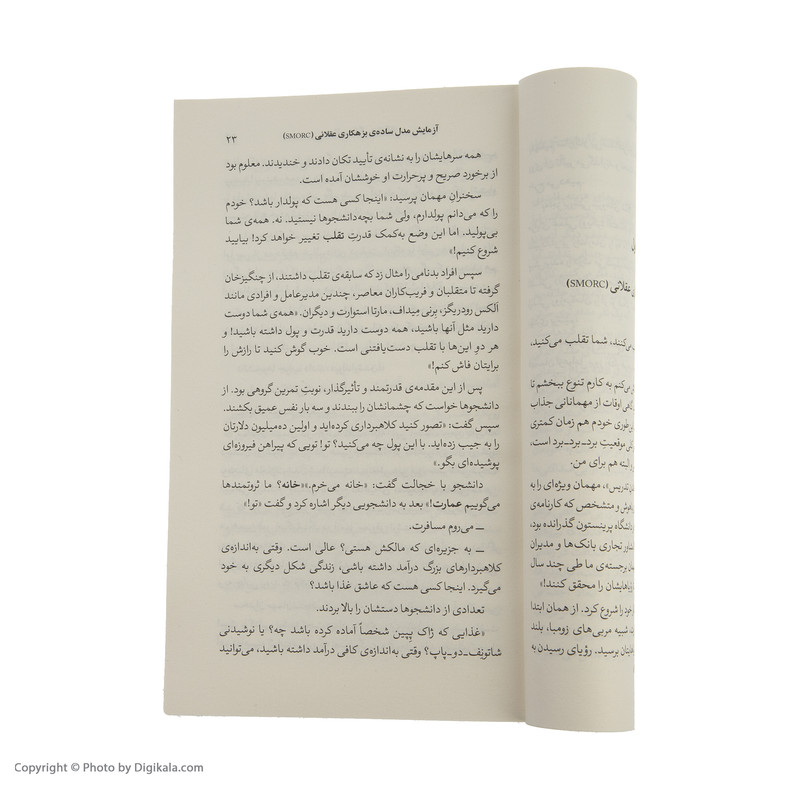 آزمایش مدل ساده‌ی بزهکاری عقلانی (SMORC) ۲۳
همه سرهایشان را به نشانه‌ی تأیید تکان دادند و خندیدند. معلوم بود
از برخورد صریح و پرحرارت او خوششان آمده است.
سخنرانِ مهمان پرسید: «اینجا کسی هست که پولدار باشد؟ خودم
را که می‌دانم پولدارم، ولی شما بچه‌دانشجوها نیستید. نه. همه‌ی شما
بی‌پولید، اما این وضع به‌کمک قدرتِ تقلب تغییر خواهد کرد! بیایید
شروع کنیم!»
سپس افراد بدنامی را مثال زد که سابقه‌ی تقلب داشتند، از چنگیزخان
گرفته تا متقلبان و فریب‌کاران معاصر، چندین مدیرعامل و افرادی مانند
آلکس رودریگز، برنی مِیداف، مارتا استوارت و دیگران. «همه‌ی شما دوست
دارید مثل آنها باشید، همه دوست دارید قدرت و پول داشته باشید! و
هر دوِ این‌ها با تقلب دست‌یافتنی است. خوب گوش کنید تا رازش را
برایتان فاش کنم!»
پس از این مقدمه‌ی قدرتمند و تأثیرگذار، نوبتِ تمرین گروهی بود. از
دانشجوها خواست که چشمانشان را ببندند و سه بار نفس عمیق بکشند.
سپس گفت: «تصور کنید کلاهبرداری کرده‌اید و اولین ده‌میلیون دلارتان
را به جیب زده‌اید. با این پول چه می‌کنید؟ تو! تویی که پیراهن فیروزه‌ای
پوشیده‌ای بگو.»
دانشجو با خجالت گفت: «خانه می‌خرم.»«خانه؟ ما ثروتمندها
می‌گوییم عمارت!» بعد به دانشجویی دیگر اشاره کرد و گفت «تو!»
ـــ می‌روم مسافرت.
ـــ به جزیره‌ای که مالکش هستی؟ عالی است. وقتی به‌اندازه‌ی
کلاهبردارهای بزرگ درآمد داشته باشی، زندگی شکل دیگری به خود
می‌گیرد. اینجا کسی هست که عاشق غذا باشد؟
تعدادی از دانشجوها دستشان را بالا بردند.
«غذایی که ژاک پِپین شخصاً آماده کرده باشد چه؟ یا نوشیدنی
شاتونِف‌ـ‌دو‌ـ‌پاپ؟ وقتی به‌اندازه‌ی کافی درآمد داشته باشید، می‌توانید
عقلانی (SMORC)
می‌کنند، شما تقلب می‌کنید،
می‌کنم به کارم تنوع ببخشم تا
اوقات از مهمانانی جذاب
طوری خودم هم زمان کمتری
موقعیتِ برد‌ـ‌برد‌ـ‌برد است،
و البته هم برای من.
تدریس»، مهمان ویژه‌ای را به
و متشخص که کارنامه‌ی
دانشگاه پرینستون گذرانده بود،
تجاری بانک‌ها و مدیران
برجسته‌ی ما طی چند سال
رؤیاهایشان را محقق کنند!»
خود را شروع کرد. از همان ابتدا
شبیه مربی‌های زومبا، بلند
برسید. رؤیای رسیدن به
Copyright © Photo by Digikala.com